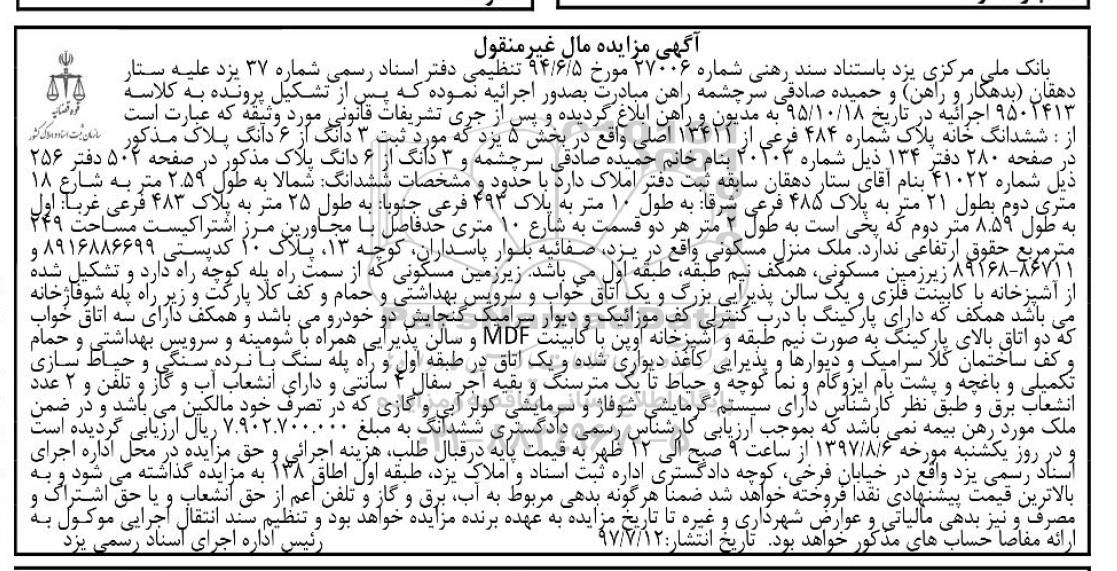 آگهی مزایده مال غیرمنقول
بانک ملی مرکزی یزد باستناد سند رهنی شماره ۲۷۰۰۶ مورخ ۹۴/۶/۵ تنظیمی دفتر اسناد رسمی شماره ۳۷ یزد علیه ستار
دهقان (بدهکار و راهن) و حمیده صادقی سرچشمه راهن مبادرت بصدور اجرائیه نموده که پس از تشکیل پرونده به کلاسه
۹۵۰۱۴۱۳ اجرائیه در تاریخ ۹۵/۱۰/۱۸ به مدیون و راهن ابلاغ گردیده و پس از جری تشریفات قانونی مورد وثیقه که عبارت است
از : ششدانگ خانه پلاک شماره ۴۸۴ فرعی از ۱۳۴۱۱ اصلی واقع در بخش ۵ یزد که مورد ثبت ۳ دانگ از ۶ دانگ پلاک مذکور
در صفحه ۲۸۰ دفتر ۱۳۴ ذیل شماره ۲۰۱۰۳ بنام خانم حمیده صادقی سرچشمه و ۳ دانگ از ۶ دانگ پلاک مذکور در صفحه ۵۰۲ دفتر ۲۵۶
ذیل شماره ۴۱۰۲۲ بنام آقای ستار دهقان سابقه ثبت دفتر املاک دارد با حدود و مشخصات ششدانگ: شمالا به طول ۲.۵۹ متر به شارع ۱۸
متری دوم بطول ۲۱ متر به پلاک ۴۸۵ فرعی شرقا: به طول ۱۰ متر به پلاک ۴۹۳ فرعی جنوبا: به طول ۲۵ متر به پلاک ۴۸۳ فرعی غربا: اول
به طول ۸.۵۹ متر دوم که پخی است به طول ۲ متر هر دو قسمت به شارع ۱۰ متری حدفاصل با مجاورین مرز اشتراکیست مساحت ۲۴۹
مترمربع حقوق ارتفاعی ندارد. ملک منزل مسکونی واقع در یزد، صفائیه بلوار پاسداران، کوچه ۱۳، پلاک ۱۰ کدپستی ۸۹۱۶۸۸۶۶۹۹ و
۸۹۱۶۸-۸۶۷۱۱ زیرزمین مسکونی، همکف نیم طبقه، طبقه اول می باشد. زیرزمین مسکونی که از سمت راه پله کوچه راه دارد و تشکیل شده
از آشپزخانه با کابینت فلزی و یک سالن پذیرایی بزرگ و یک اتاق خواب و سرویس بهداشتی و حمام و کف کلا پارکت و زیر راه پله شوفاژخانه
می باشد همکف که دارای پارکینگ با درب کنترلی کف موزائیک و دیوار سرامیک گنجایش دو خودرو می باشد و همکف دارای سه اتاق خواب
که دو اتاق بالای پارکینگ به صورت نیم طبقه و آشپزخانه اوپن با کابینت MDF و سالن پذیرایی همراه با شومینه و سرویس بهداشتی و حمام
و کف ساختمان کلا سرامیک و دیوارها و پذیرایی کاغذ دیواری شده و یک اتاق در طبقه اول و راه پله سنگ با نرده سنگی و حیاط سازی
تکمیلی و باغچه و پشت بام ایزوگام و نما کوچه و حیاط تا یک مترسنگ و بقیه آجر سفال ۴ سانتی و دارای انشعاب آب و گاز و تلفن و ۲ عدد
انشعاب برق و طبق نظر کارشناس دارای سیستم گرمایشی شوفاژ و سرمایشی کولر آبی و گازی که در تصرف خود مالکین می باشد و در ضمن
ملک مورد رهن بیمه نمی باشد که بموجب ارزیابی کارشناس رسمی دادگستری ششدانگ به مبلغ ۷.۹۰۲.۷۰۰.۰۰۰ ریال ارزیابی گردیده است
و در روز یکشنبه مورخه ۱۳۹۷/۸/۶ از ساعت ۹ صبح الی ۱۲ ظهر به قیمت پایه درقبال طلب، هزینه اجرائی و حق مزایده در محل اداره اجرای
اسناد رسمی یزد واقع در خیابان فرخی، کوچه دادگستری اداره ثبت اسناد و املاک یزد، طبقه اول اطاق ۱۳۸ به مزایده گذاشته می شود و به
بالاترین قیمت پیشنهادی نقدا فروخته خواهد شد ضمنا هرگونه بدهی مربوط به آب، برق و گاز و تلفن اعم از حق انشعاب و یا حق اشتراک و
مصرف و نیز بدهی مالیاتی و عوارض شهرداری و غیره تا تاریخ مزایده به عهده برنده مزایده خواهد بود و تنظیم سند انتقال اجرایی موکول به
ارائه مفاصا حساب های مذکور خواهد بود. تاریخ انتشار:۹۷/۷/۱۲
رئیس اداره اجرای اسناد رسمی یزد
قوه قضائیه
سازمان ثبت اسناد و املاک کشور